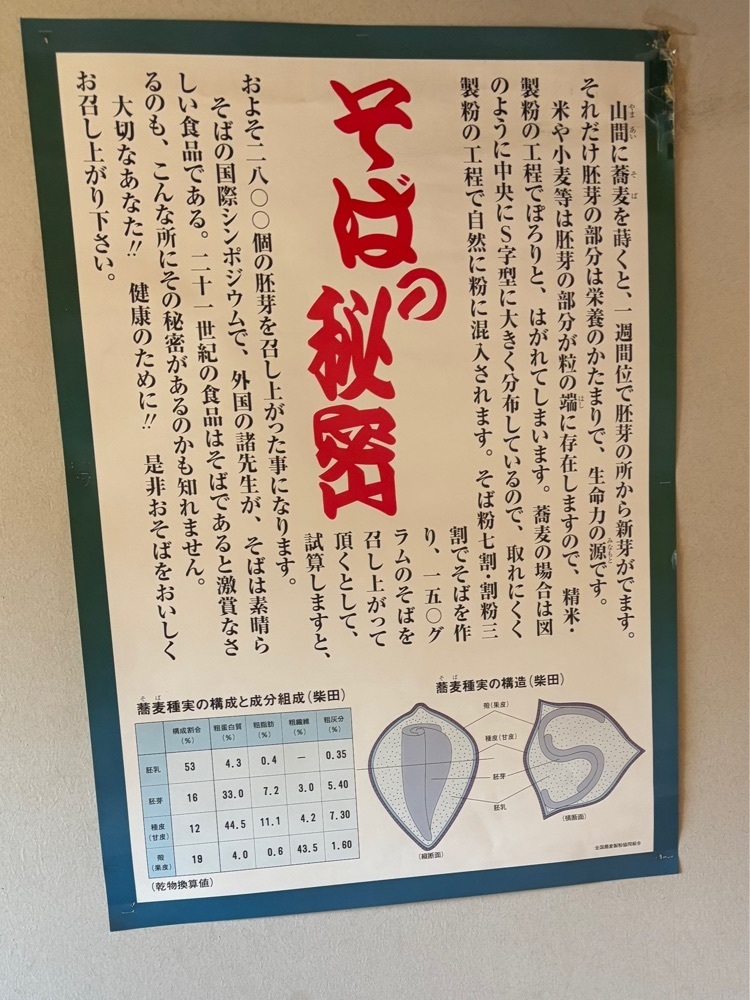 そばの秘密
山間に蕎麦を蒔くと、一週間位で胚芽の所から新芽がでます。
それだけ胚芽の部分は栄養のかたまりで、生命力の源です。
米や小麦等は胚芽の部分が粒の端に存在しますので、精米・
製粉の工程でぽろりと、はがれてしまいます。蕎麦の場合は図
のように中央にS字型に大きく分布しているので、取れにくく
製粉の工程で自然に粉に混入されます。そば粉七割・割粉三
割でそばを作
り、一五〇グ
ラムのそばを
召し上がって
頂くとして、
試算しますと、
およそ二八〇〇個の胚芽を召し上がった事になります。
そばの国際シンポジウムで、外国の諸先生が、そばは素晴ら
しい食品である。二十一世紀の食品はそばであると激賞なさ
るのも、こんな所にその秘密があるのかも知れません。
大切なあなた!! 健康のために!! 是非おそばをおいしく
お召し上がり下さい。
蕎麦種実の構成と成分組成(柴田)
構成割合(%) 粗蛋白質(%) 粗脂肪(%) 粗繊維(%) 粗灰分(%)
胚乳 53 4.3 0.4 — 0.35
胚芽 16 33.0 7.2 3.0 5.40
種皮(甘皮) 12 44.5 11.1 4.2 7.30
殻(果皮) 19 4.0 0.6 43.5 1.60
(乾物換算値)
蕎麦種実の構造(柴田)
殻(果皮)
種皮(甘皮)
胚芽
胚乳
(縦断面)
(横断面)
全国蕎麦製粉協同組合